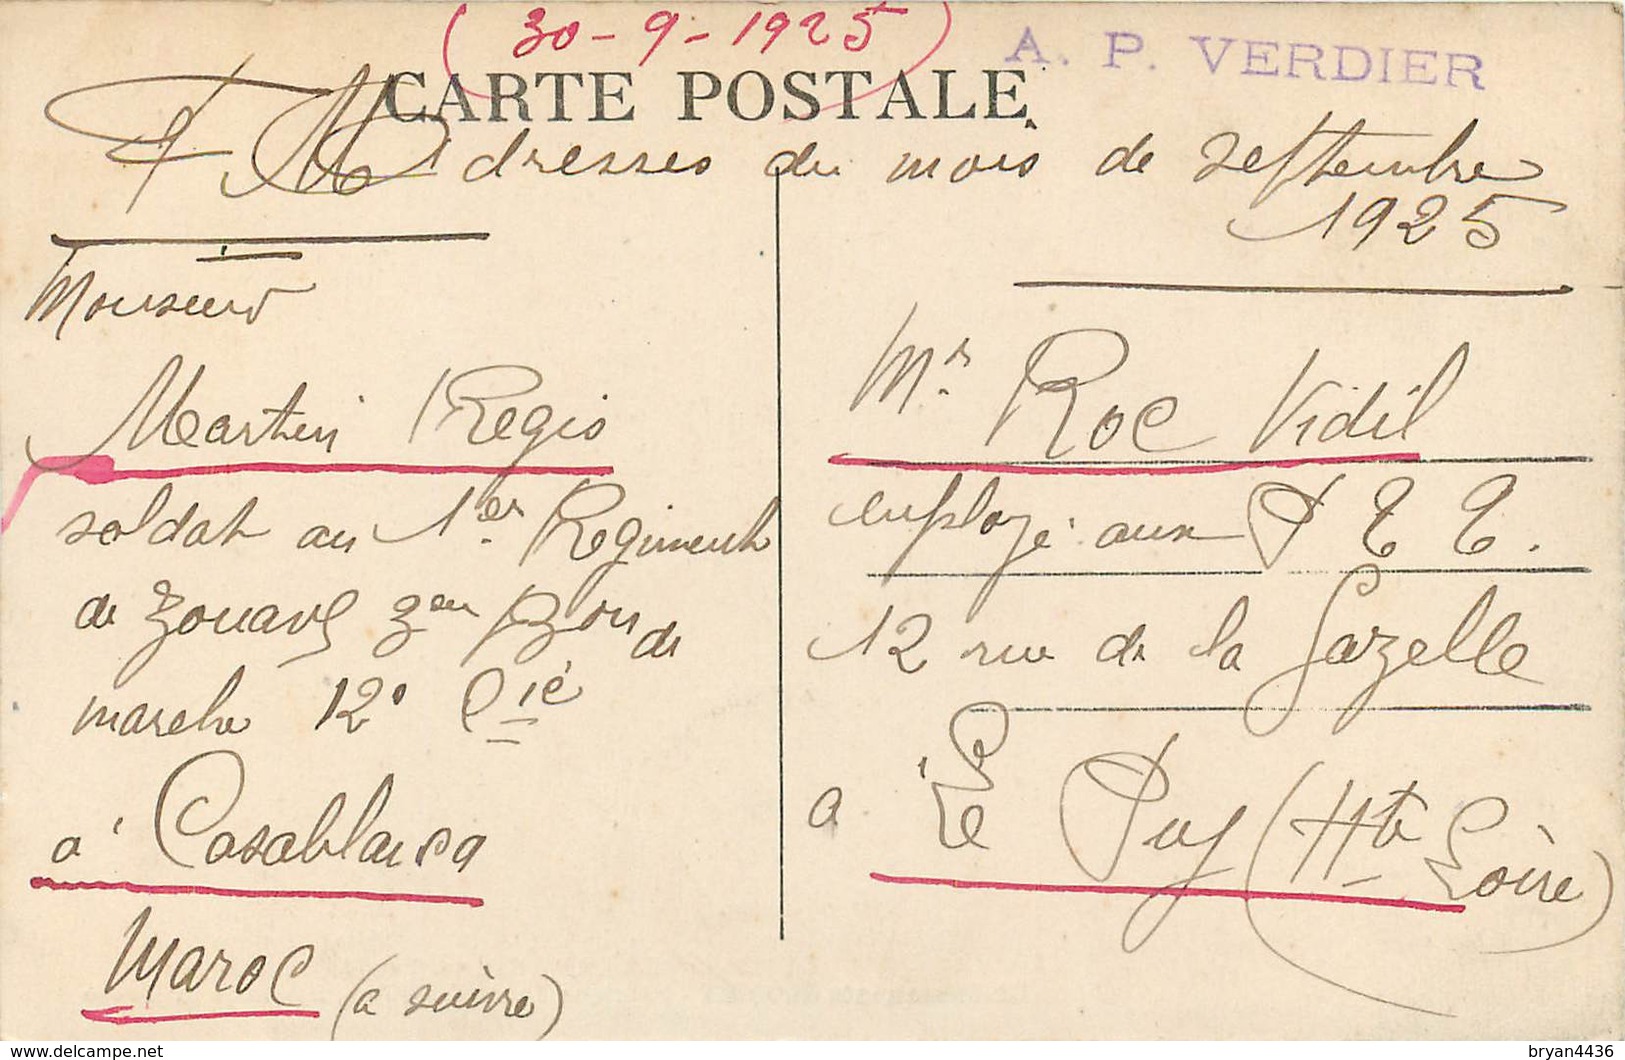 (30-9-1925)
A. P. VERDIER
CARTE POSTALE
F M Adresses du mois de septembre
1925
Monsieur
Martin Regis
soldat au 1er Regiment
de Zouaves 3eme Bon de
marche 12e Cie
a Casablanca
Maroc (a suivre)
Mr Roc Vidil
employé aux P T T.
12 rue de la Gazelle
a Le Puy (Hte Loire)
bryan4436
https://www.delcampe.net